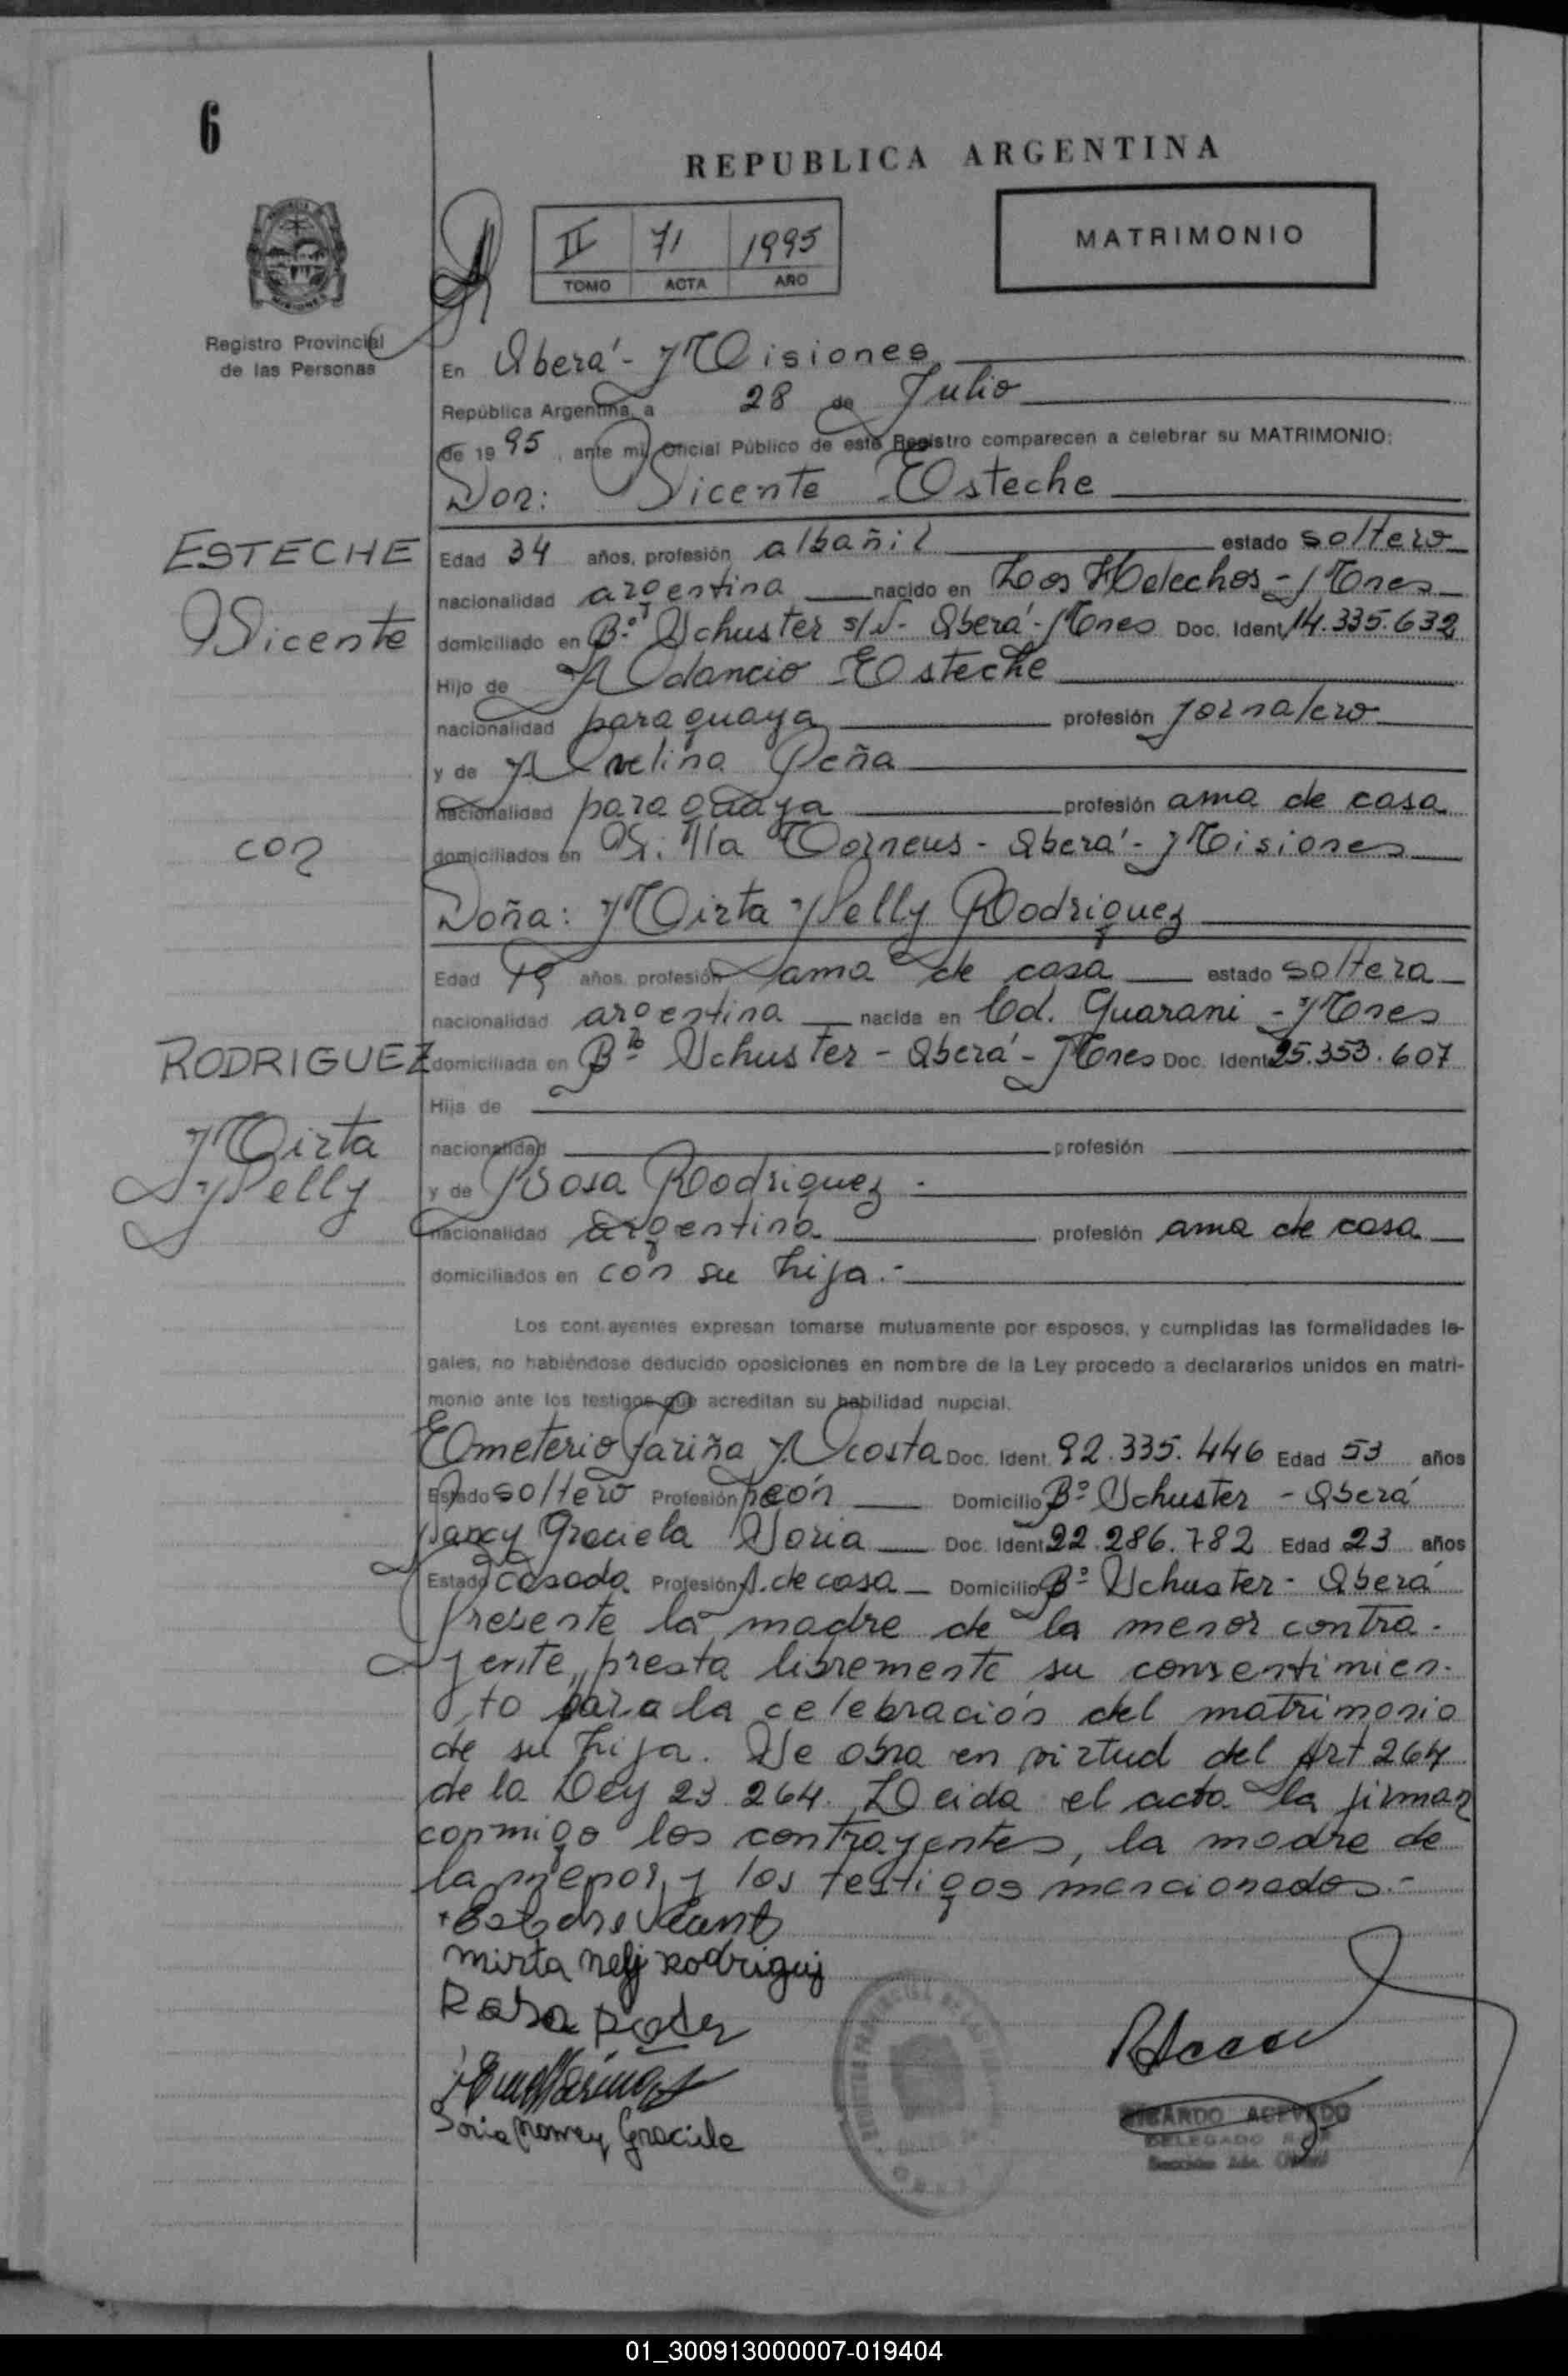 6
REPUBLICA ARGENTINA
II 71 1995
TOMO ACTA AÑO
MATRIMONIO
Registro Provincial
de las Personas
En Oberá - Misiones
República Argentina, a 28 de Julio
de 1995, ante mi, Oficial Público de este Registro comparecen a celebrar su MATRIMONIO:
Don: Vicente Esteche
ESTECHE
Vicente
Edad 34 años, profesión albañil estado soltero
nacionalidad argentina nacido en Los Helechos - Mnes
domiciliado en B.º Schuster s/N - Oberá - Mnes Doc. Ident. 14.335.632
Hijo de Adancio Esteche
nacionalidad paraguaya profesión jornalero
y de Avelina Peña
nacionalidad paraguaya profesión ama de casa
con
domiciliados en Villa Torneus - Oberá - Misiones
Doña: Mirta Nelly Rodriguez
Edad 19 años, profesión ama de casa estado soltera
nacionalidad argentina nacida en Cd. Guarani - Mnes
RODRIGUEZ
Mirta
Nelly
domiciliada en Bº Schuster - Oberá - Mnes Doc. Ident. 25.353.607
Hija de
nacionalidad profesión
y de Rosa Rodriguez.-
nacionalidad argentina profesión ama de casa
domiciliados en con su hija.-
Los contrayentes expresan tomarse mutuamente por esposos, y cumplidas las formalidades le-
gales, no habiéndose deducido oposiciones en nombre de la Ley procedo a declararlos unidos en matri-
monio ante los testigos que acreditan su habilidad nupcial.
Emeterio Fariña Acosta Doc. Ident. 92.335.446 Edad 53 años
Estado soltero Profesión peón Domicilio Bº Schuster - Oberá
Nancy Graciela Soria Doc. Ident. 22.286.782 Edad 23 años
Estado casada Profesión A. de casa Domicilio Bº Schuster - Oberá
Presente la madre de la menor contra-
yente, presta libremente su consentimien-
to para la celebración del matrimonio
de su hija. Se obra en virtud del Art 264
de la Ley 23.264. Leida el acta la firman
conmigo los contrayentes, la madre de
la menor y los testigos mencionados.-
mirta nely Rodriguez
Rosa
Soria Nancy Graciela
RICARDO ACEVEDO
DELEGADO
01_300913000007-019404